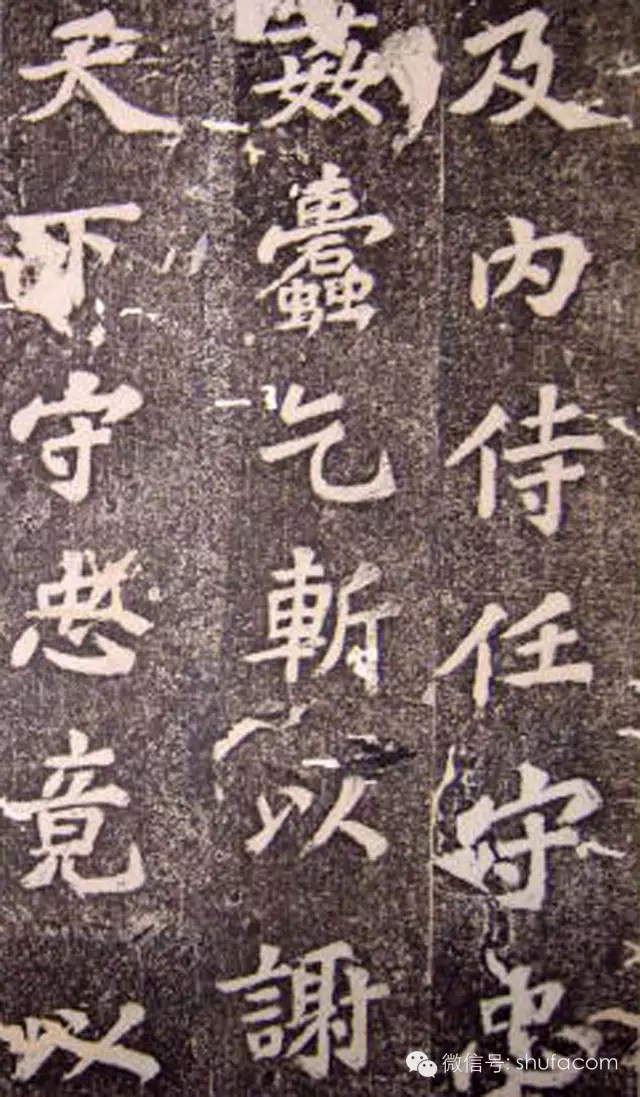 及內侍任守忠
姦蠹乞斬以謝
天下守忠竟以
微信号: shufacom